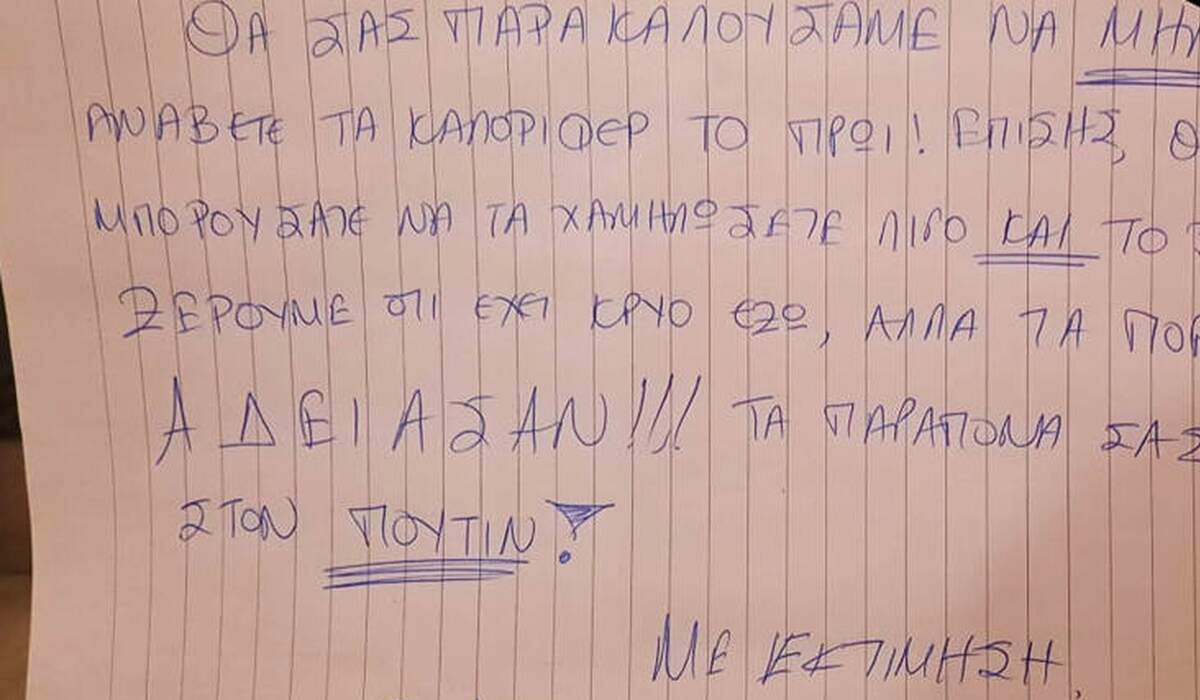 ΘΑ ΣΑΣ ΠΑΡΑΚΑΛΟΥΣΑΜΕ ΝΑ ΜΗΝ
ΑΝΑΒΕΤΕ ΤΑ ΚΑΛΟΡΙΦΕΡ ΤΟ ΠΡΩΙ! ΕΠΙΣΗΣ, Θ
ΜΠΟΡΟΥΣΑΤΕ ΝΑ ΤΑ ΧΑΜΗΛΩΣΕΤΕ ΛΙΓΟ ΚΑΙ ΤΟ
ΞΕΡΟΥΜΕ ΟΤΙ ΕΧΕΙ ΚΡΥΟ ΕΞΩ, ΑΛΛΑ ΤΑ
ΑΔΕΙΑΣΑΝ!!! ΤΑ ΠΑΡΑΠΟΝΑ ΣΑΣ
ΣΤΟΝ ΠΟΥΤΙΝ!
ΜΕ ΕΚΤΙΜΗΣΗ,